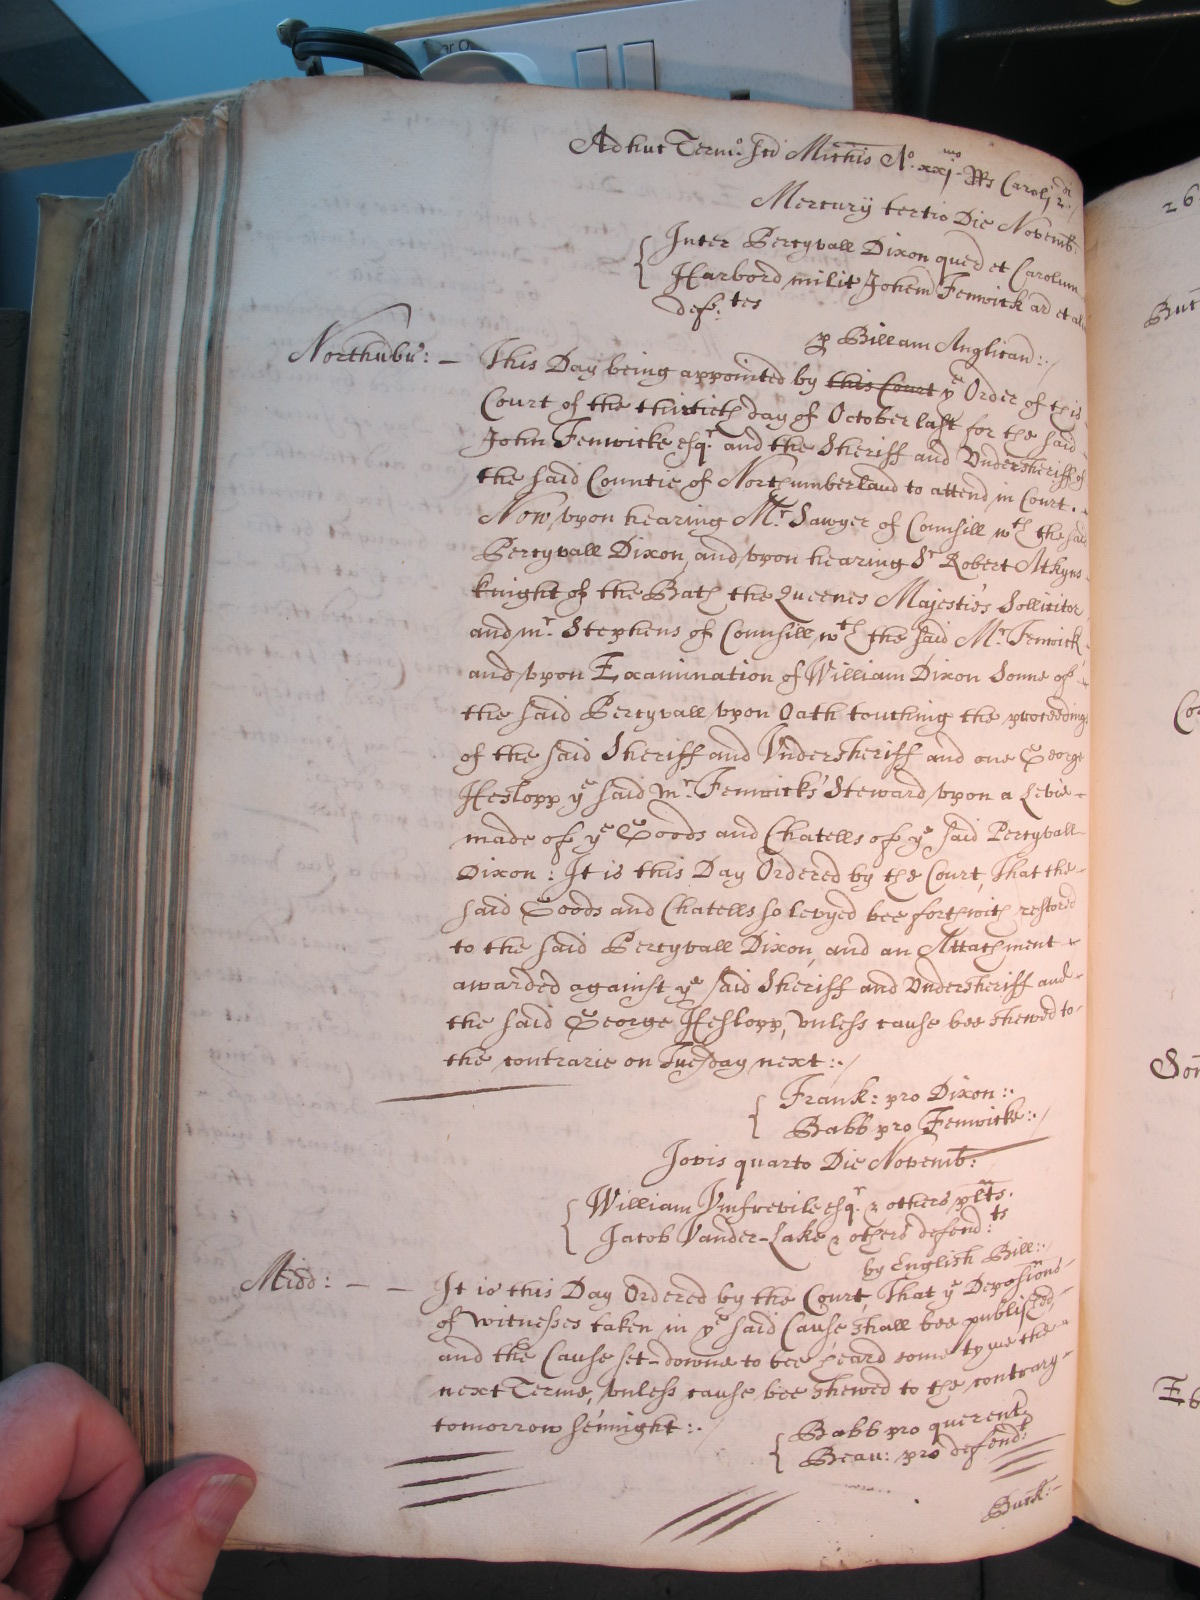 Adhuc Termo: Sci Michis Ao. xxj mo Rs Carolj 2di
Mercurij tertio Die Novemb:
Inter Percyvall Dixon quer et Carolum
Harbord milit Johem Fenwick ar et al
defs: tes
p Billam Anglican:
Northubr: - This Day being appointed by this Court ye Order of this
Court of the thirtieth day of October last for the said
John Fenwicke esqr. and the Sheriff and Undersheriff of
the said Countie of Northumberland to attend in Court.
Now upon hearing Mr Sawyer of Counsill wth the said
Percyvall Dixon, and upon hearing Sr Robert Atkyns
knight of the Bath the Queenes Majesties Sollicitor
and mr. Stephens of Counsill wth the said Mr Fenwick
and upon Examination of William Dixon Sonne of
the said Percyvall upon Oath touching the proceedings
of the said Sheriff and Undersheriff and one George
Heslopp ye said mr. Fenwicks Steward upon a Levie
made of ye Goods and Chatells of ye said Percyvall
Dixon: It is this Day Ordered by the Court, That the
said Goods and Chatells so levyed bee forthwith restored
to the said Percyvall Dixon, and an Attachment
awarded against ye said Sheriff and Undersheriff and
the said George Heslopp, unless cause bee shewed to
the contrarie on Tuesday next:
Frank: pro Dixon:
Babb pro Fenwicke:
Jovis quarto Die Novemb:
William Umfrevile esqr. & others plts.
Jacob Vander-Lake & others defend:ts
by English Bill:
Midd: - - It is this Day Ordered by the Court, That ye Deposions
of witnesses taken in ye said Cause shall bee published,
and the Cause set-downe to bee heard some tyme the
next Terme, unless cause bee shewed to the contrary
tomorrow sennight:
Babb pro querent
Beau: pro defendt
Buck:
26
But
Co
Som
Eb